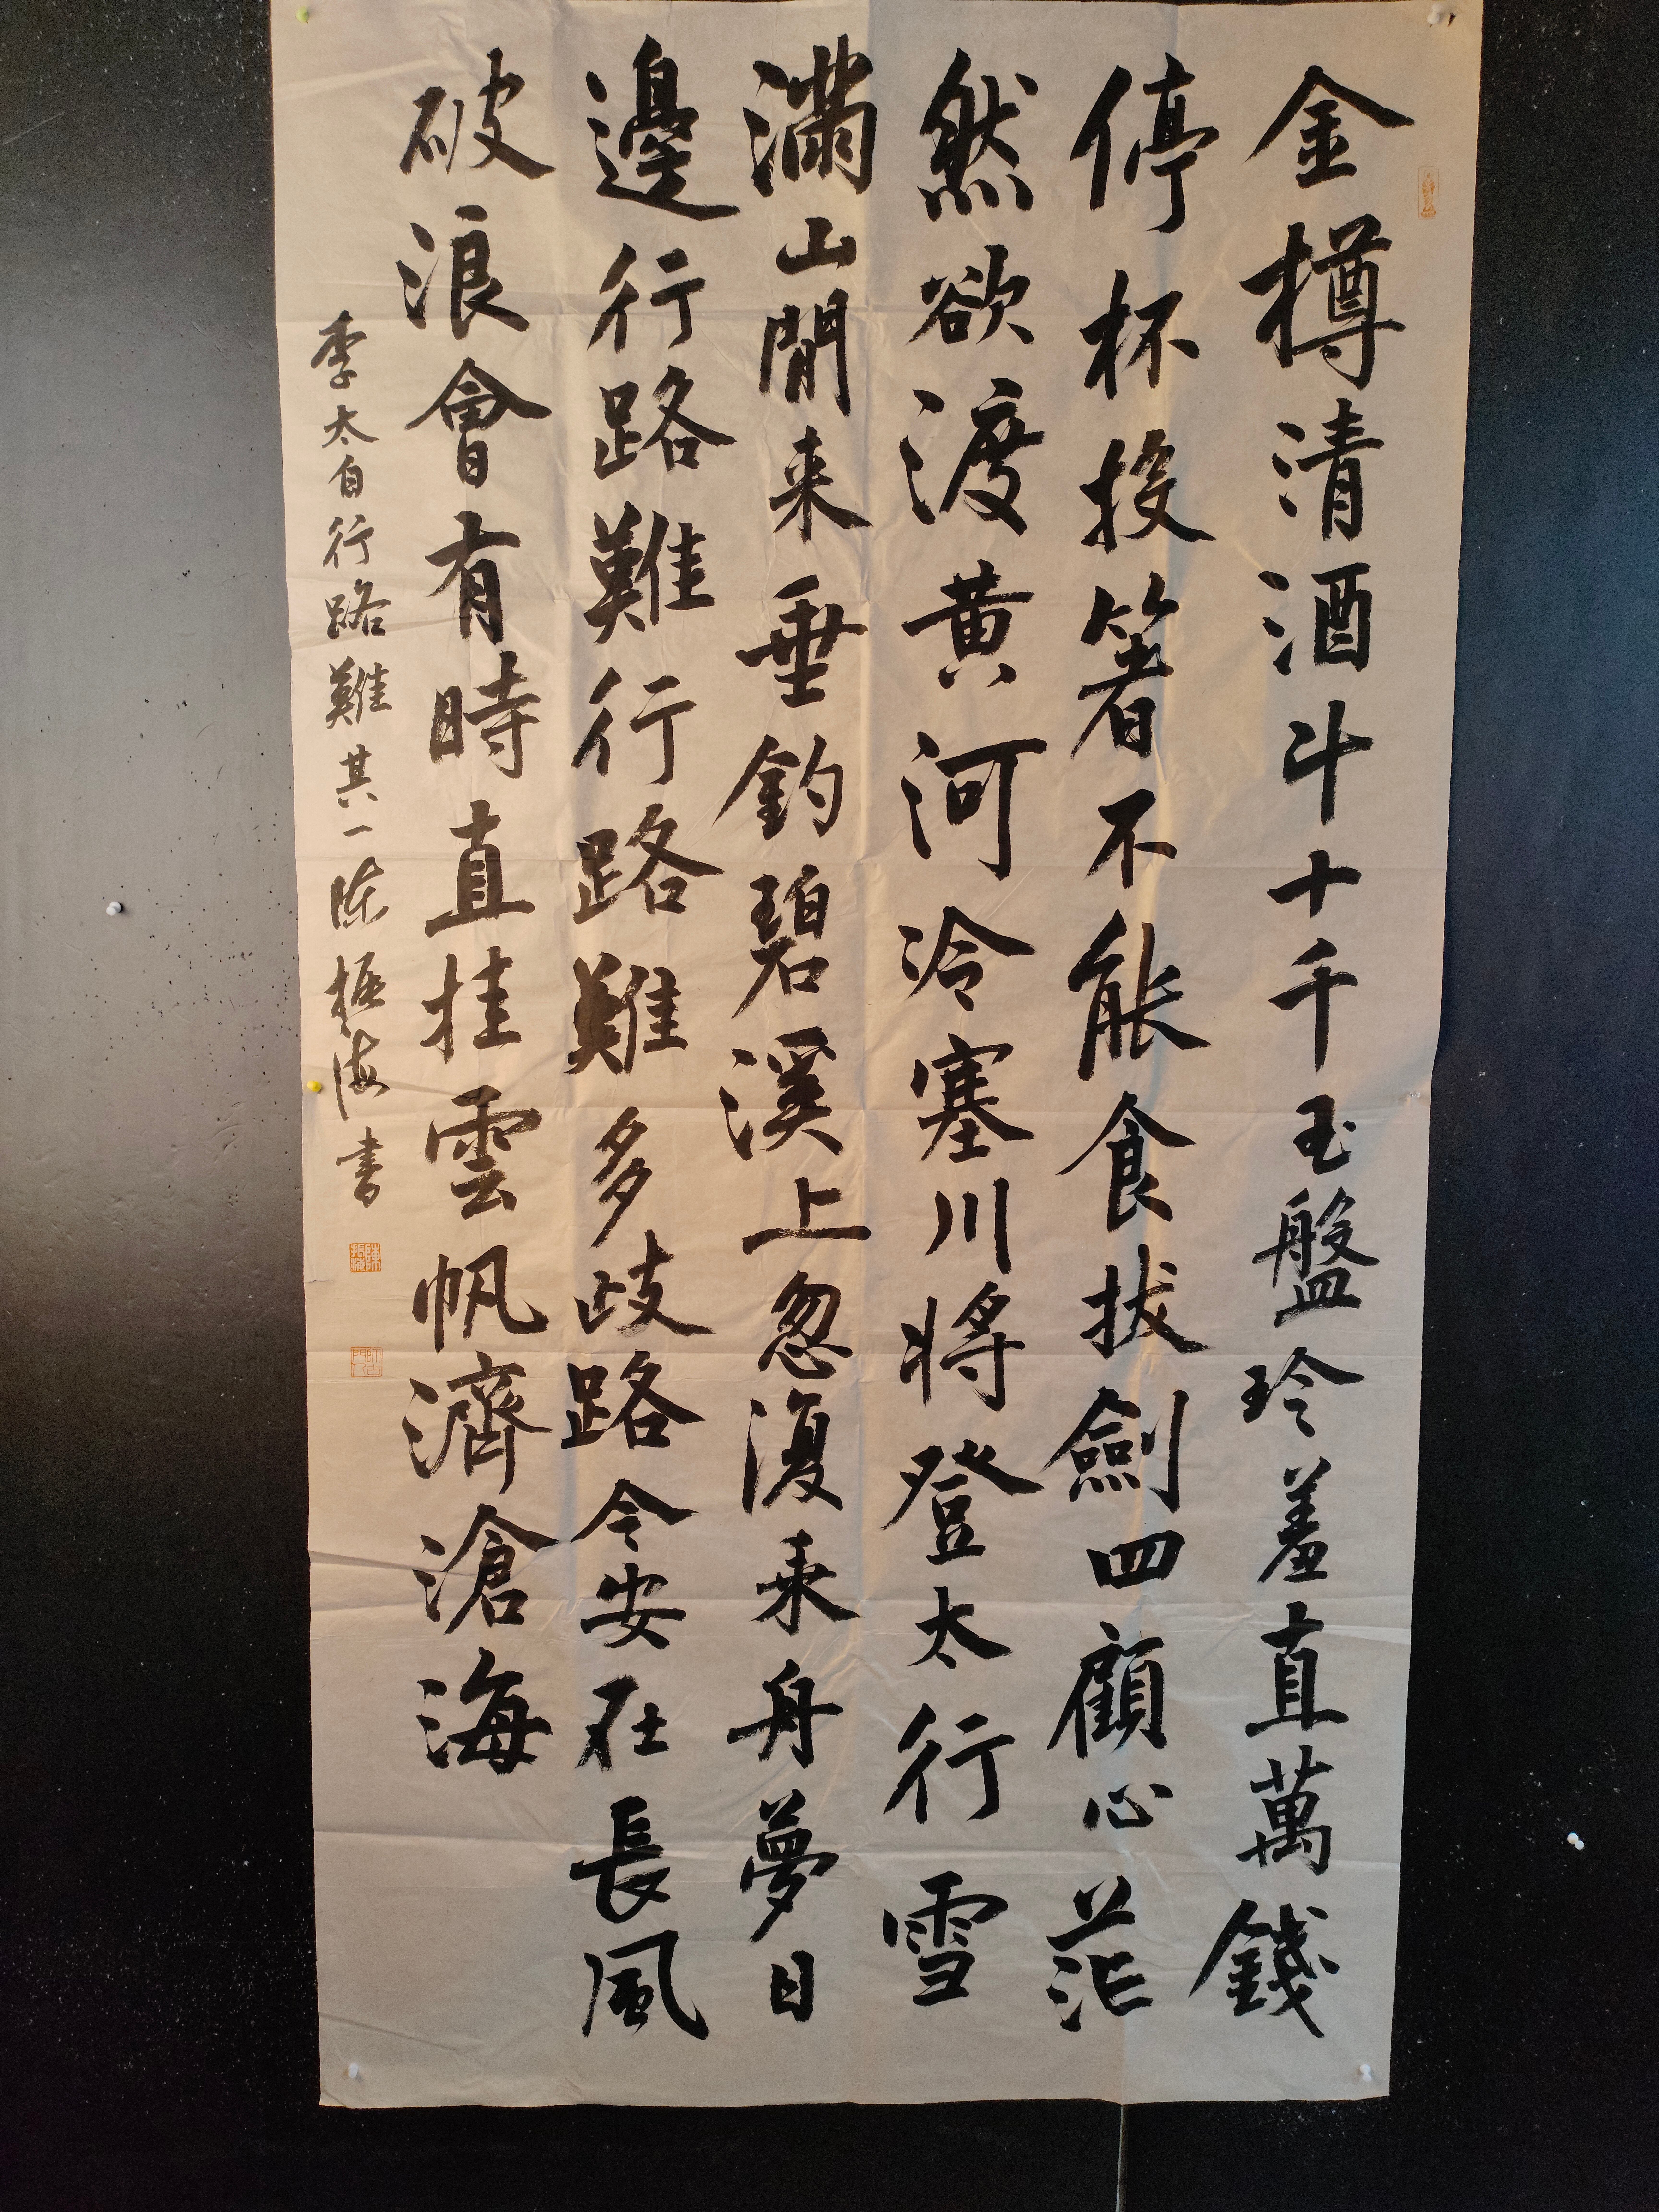 金樽清酒斗十千玉盤玲羞直萬錢
停杯投箸不能食拔劍四顧心茫
然欲渡黄河冷塞川将登太行雪
滿山閒来垂釣碧溪上忽復乘舟夢日
邊行路難行路難多歧路今安在長風
破浪會有時直挂雲帆濟滄海
李太白行路難其一陈振海書